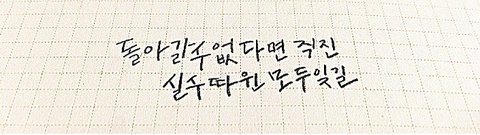 돌아갈수없다면 직진
실수따윈 모두잊길